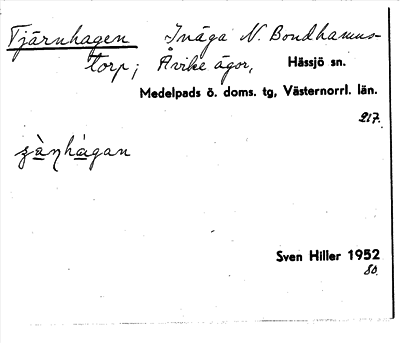 Tjärnhagen Inäga N. Bondhamns-
torp; Åvike ägor, Hässjö sn.
Medelpads ö. doms. tg, Västernorrl. län.
217.
Sven Hiller 1952
80.